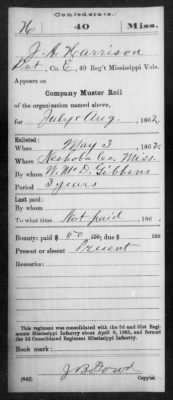 Confederate.
H 40 Miss.
J. A. Harrison
Pvt., Co. E, 40 Reg't Mississippi Vols.
Appears on
Company Muster Roll
of the organization named above,
for July & Aug, 1862.
Enlisted:
When May 3, 1862.
Where Neshoba Co. Miss.
By whom W. McD. Gibbens
Period 3 years
Last paid:
By whom
To what time Not paid, 186 .
Bounty: paid $ 50 100; due $ 100
Present or absent Present
Remarks:
This regiment was consolidated with the 3d and 31st Regiments Mississippi Infantry about April 9, 1865, and formed
the 3d Consolidated Regiment Mississippi Infantry.
Book mark:
(642) Copyist.